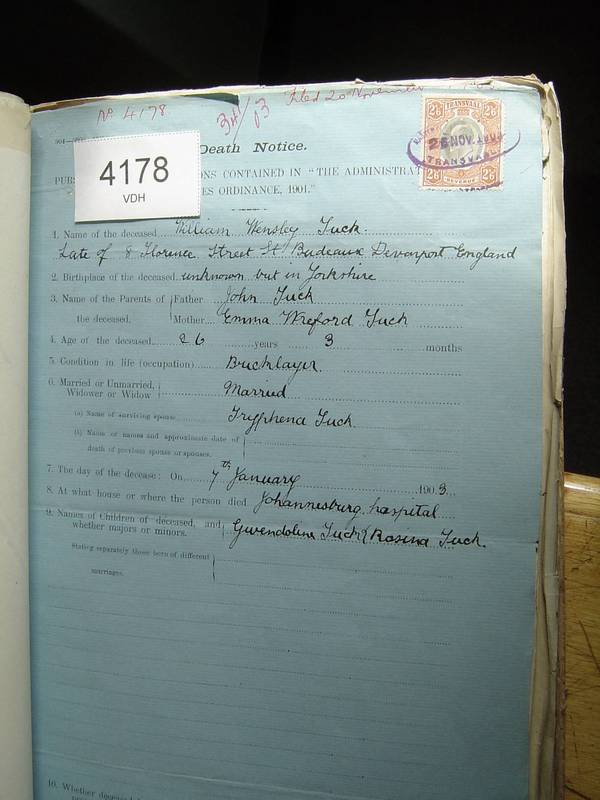 No. 4178
341/03 Filed 20 November
TRANSVAAL
2/6 2/6
26 NOV.
TRANSVAAL
2/6 REVENUE 2/6
4178
VDH
Death Notice.
PURS ONS CONTAINED IN "THE ADMINISTRAT
ES ORDINANCE, 1901."
1. Name of the deceased William Wensley Tuck.
Late of 8 Florence Street St. Budeaux Devonport England
2. Birthplace of the deceased unknown but in Yorkshire
3. Name of the Parents of Father John Tuck
the deceased. Mother Emma Wreford Tuck
4. Age of the deceased 26 years 3 months
5. Condition in life (occupation) Bricklayer.
6. Married or Unmarried, Widower or Widow Married
(a) Name of surviving spouse Tryphena Tuck
(b) Name or names and approximate date of
death of previous spouse or spouses.
7. The day of the decease: On 7th January 1903.
8. At what house or where the person died Johannesburg hospital
9. Names of Children of deceased, and
whether majors or minors. Gwendoline Tuck & Rosina Tuck.
Stating separately those born of different
marriages.
10. Whether deceased